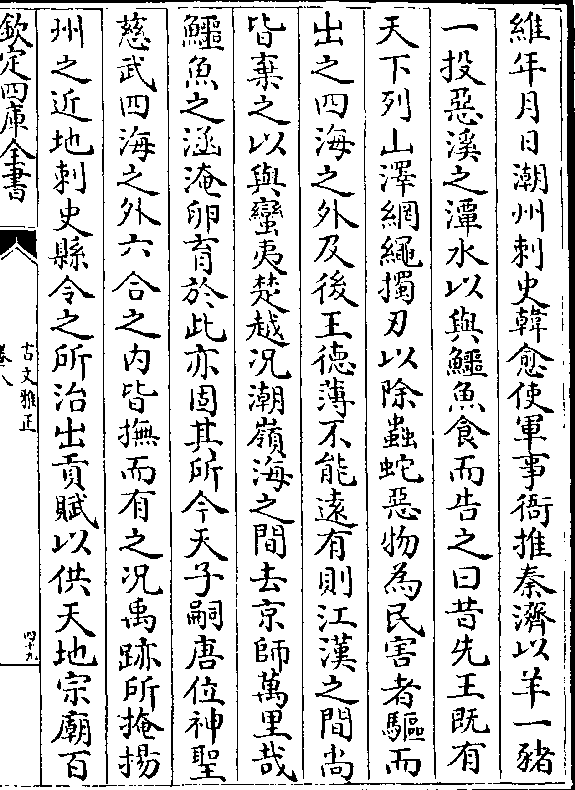 維年月日潮州刺史韓愈使軍事衙推秦濟以羊一豬
一投惡溪之潭水以與鱷魚食而告之曰昔先王既有
天下列山澤網繩擉刃以除蟲蛇惡物為民害者驅而
出之四海之外及後王德薄不能遠有則江漢之間尚
皆棄之以與蠻夷楚越況潮嶺海之間去京師萬里哉
鱷魚之涵淹卵育於此亦固其所今天子嗣唐位神聖
慈武四海之外六合之内皆撫而有之况禹跡所揜揚
州之近地刺史縣令之所治出貢賦以供天地宗廟百
欽定四庫全書
古文雅正
卷八
四十九